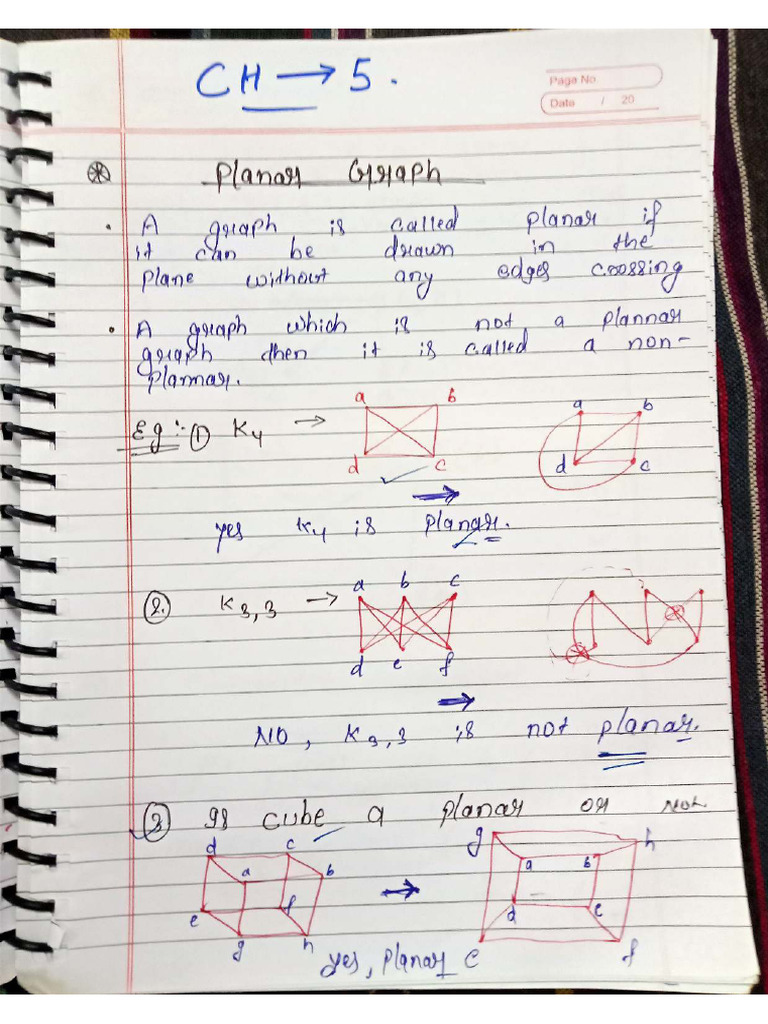 CH → 5.
Page No.
Date / 20
Planar Graph
• A graph is called planar if
it can be drawn in the
plane without any edges crossing
• A graph which is not a plannar
graph then it is called a non-
plannar.
Eg :- ① K4 →
a b
d c
a b
d c
yes K4 is planar.
②. K3,3 →
a b c
d e f
NO, K3,3 is not planar.
③ is cube a planar or not
d c
a b
e f
g h
g h
a b
d c
e f
yes, planar